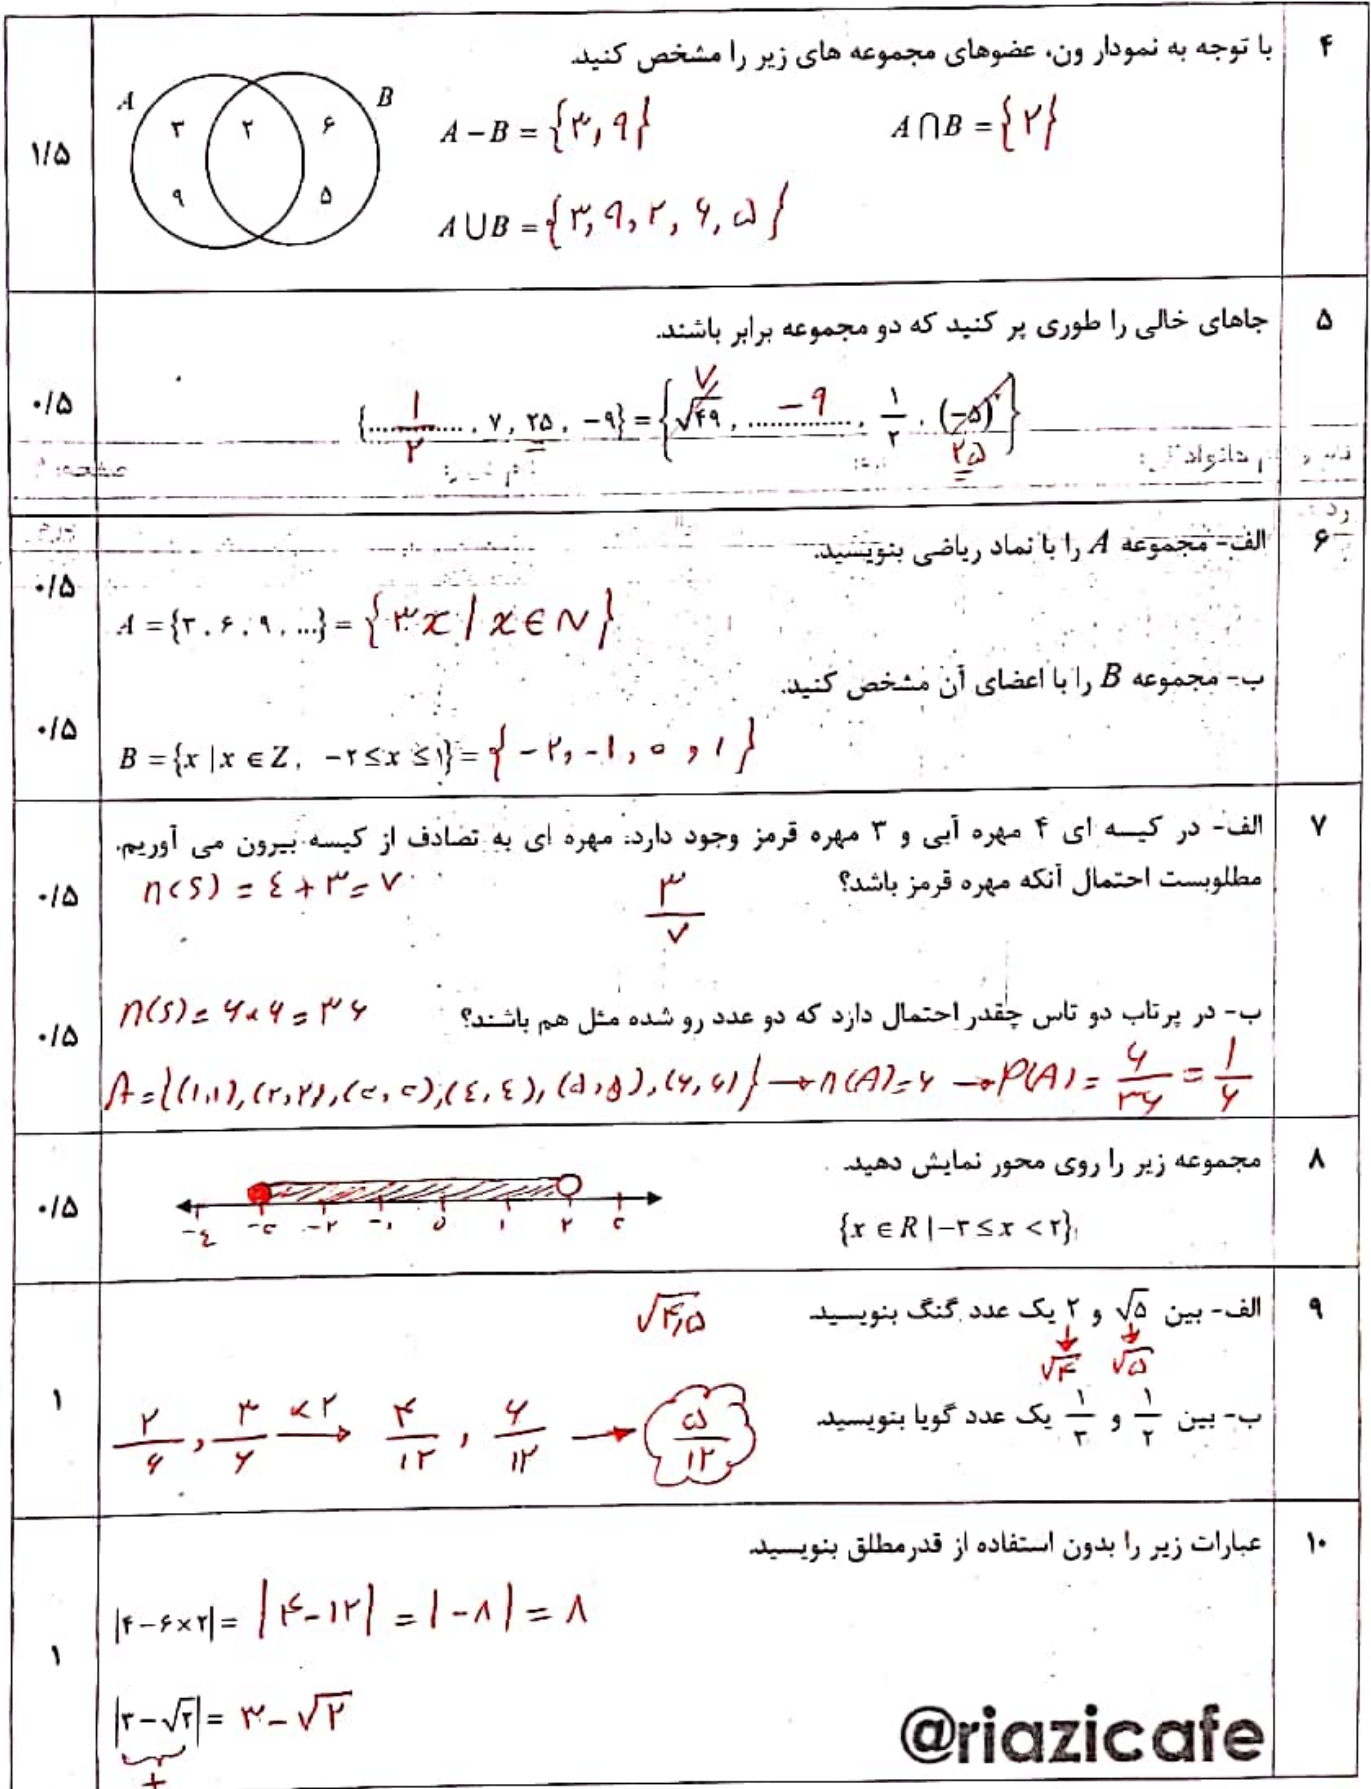 ۴ با توجه به نمودار ون، عضوهای مجموعه های زیر را مشخص کنید.
A ∩ B = {۲} A − B = {۳, ۹}
A ∪ B = {۳, ۹, ۲, ۶, ۵}
A B ۳ ۲ ۶ ۹ ۵
۱/۵
۵ جاهای خالی را طوری پر کنید که دو مجموعه برابر باشند.
{....۱/۲...., ۷, ۲۵, −۹} = {√۴۹, ....−۹...., ۱/۲, (−۵)^۲}
۷ ۲۵
۰/۵
۶ الف- مجموعه A را با نماد ریاضی بنویسید.
A = {۳, ۶, ۹, ...} = {۳x | x ∈ N}
۰/۵
ب- مجموعه B را با اعضای آن مشخص کنید.
B = {x | x ∈ Z, −۲ ≤ x ≤ ۱} = {−۲, −۱, ۰, ۱}
۰/۵
۷ الف- در کیسه ای ۴ مهره آبی و ۳ مهره قرمز وجود دارد. مهره ای به تصادف از کیسه بیرون می آوریم.
مطلوبست احتمال آنکه مهره قرمز باشد؟ ۳/۷ n(S) = ٤ + ۳ = ۷
۰/۵
ب- در پرتاب دو تاس چقدر احتمال دارد که دو عدد رو شده مثل هم باشند؟ n(S) = ۶×۶ = ۳۶
A = {(۱,۱), (۲,۲), (۳,۳), (٤,٤), (۵,۵), (۶,۶)} → n(A) = ۶ → P(A) = ۶/۳۶ = ۱/۶
۰/۵
۸ مجموعه زیر را روی محور نمایش دهید.
{x ∈ R | −۳ ≤ x < ۲}
−٤ −۳ −۲ −۱ ۰ ۱ ۲ ۳
۰/۵
۹ الف- بین √۵ و ۲ یک عدد گنگ بنویسید. √۴٫۵
√۵ √۴
ب- بین ۱/۲ و ۱/۳ یک عدد گویا بنویسید.
۲/۶ , ۳/۶ ×۲→ ۴/۱۲ , ۶/۱۲ → ۵/۱۲
۱
۱۰ عبارات زیر را بدون استفاده از قدرمطلق بنویسید.
|۴ − ۶×۲| = |۴ − ۱۲| = |−۸| = ۸
|۳ − √۲| = ۳ − √۲
+
۱
@riazicafe